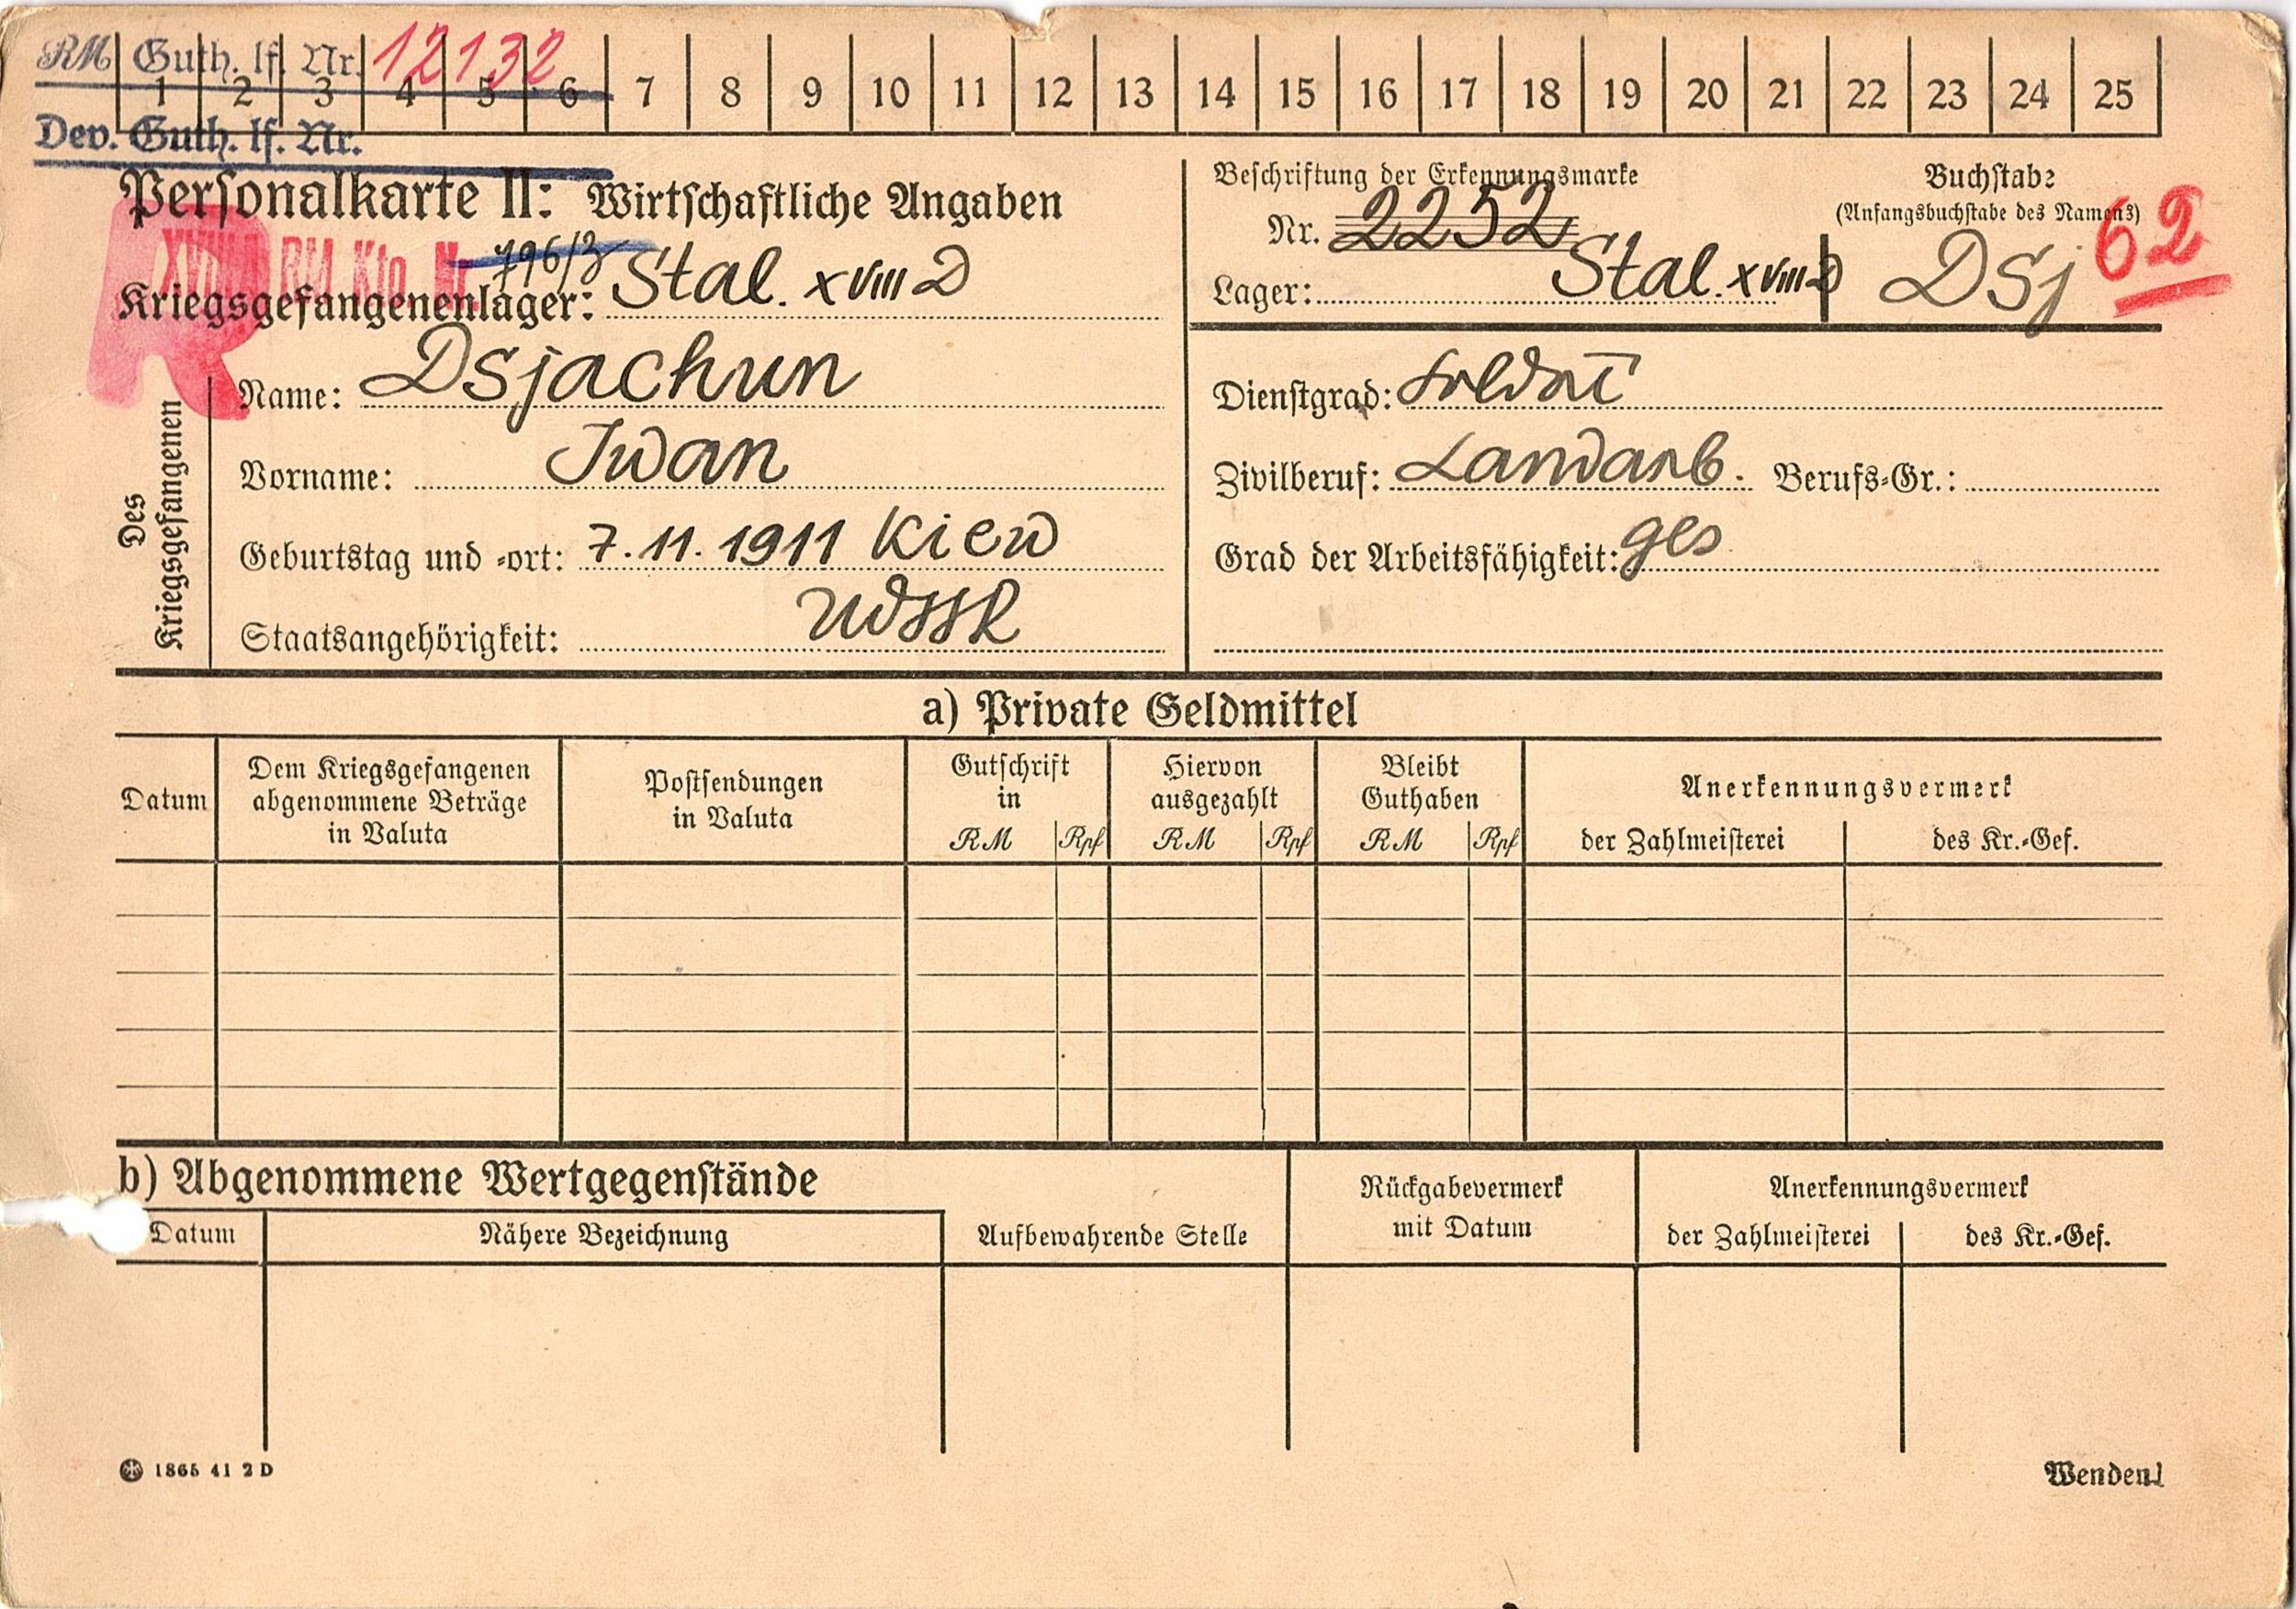 RM Guth. lf. Nr. 12132
1 2 3 4 5 6 7 8 9 10 11 12 13 14 15 16 17 18 19 20 21 22 23 24 25
Dev. Guth. lf. Nr.
Personalkarte II: Wirtschaftliche Angaben
Beschriftung der Erkennungsmarke
Nr. 2252
Lager: Stal. XVIII D
Buchstabe
(Anfangsbuchstabe des Namens)
DSj
62
R
RM Kto. Nr. 796/3
Kriegsgefangenenlager: Stal. XVIII D
Des Kriegsgefangenen
Name: Dsjachun
Vorname: Iwan
Geburtstag und -ort: 7.11.1911 Kiew
Staatsangehörigkeit: UdSSR
Dienstgrad: Soldat
Zivilberuf: Landarb. Berufs-Gr.:
Grad der Arbeitsfähigkeit: ges
a) Private Geldmittel
Datum
Dem Kriegsgefangenen
abgenommene Beträge
in Valuta
Postsendungen
in Valuta
Gutschrift
in
RM Rpf
Hiervon
ausgezahlt
RM Rpf
Bleibt
Guthaben
RM Rpf
Anerkennungsvermerk
der Zahlmeisterei
des Kr.-Gef.
b) Abgenommene Wertgegenstände
Datum
Nähere Bezeichnung
Aufbewahrende Stelle
Rückgabevermerk
mit Datum
Anerkennungsvermerk
der Zahlmeisterei
des Kr.-Gef.
1865 41 2 D
Wenden!